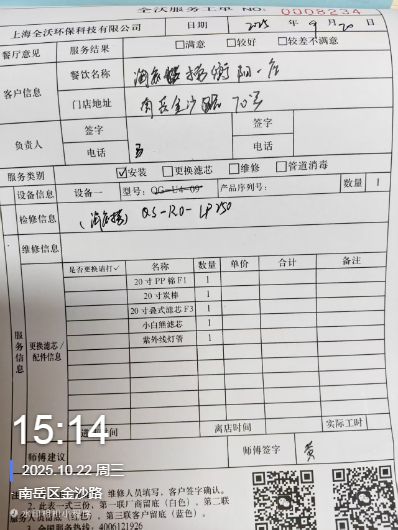 全沃服务工单 NO. 0008234
上海全沃环保科技有限公司 日期 2025 年 9 月 20 日
餐厅意见 服务结果 □满意 □较好 □较差不满意
客户信息 餐饮名称 衡阳一店
门店地址 南岳金沙路 70号
负责人 签字 签字
电话 电话
服务类别 ☑安装 □更换滤芯 □维修 □管道消毒
设备信息 设备一 型号: QG-U4-09 产品序列号: 数量 1
检修信息 QS-RO-LP150
维修信息
服务信息 更换滤芯/配件信息
是否更换请打✓ 名称 数量 单价 合计 备注
20寸PP棉F1 1
20寸炭棒 1
20寸叠式滤芯F3 1
小白熊滤芯 1
紫外线灯管 1
时间 离店时间 实际工时
师傅建议 师傅签字 黄
15:14
2025.10.22 周三
南岳区金沙路
水印相机
维修人员填写，客户签字确认。
2、此表一式三份，第一联厂商留底（白色）、第二联
服务人员留底（蓝色）、第三联客户留底（蓝色）。
3、全国服务热线：4006121926